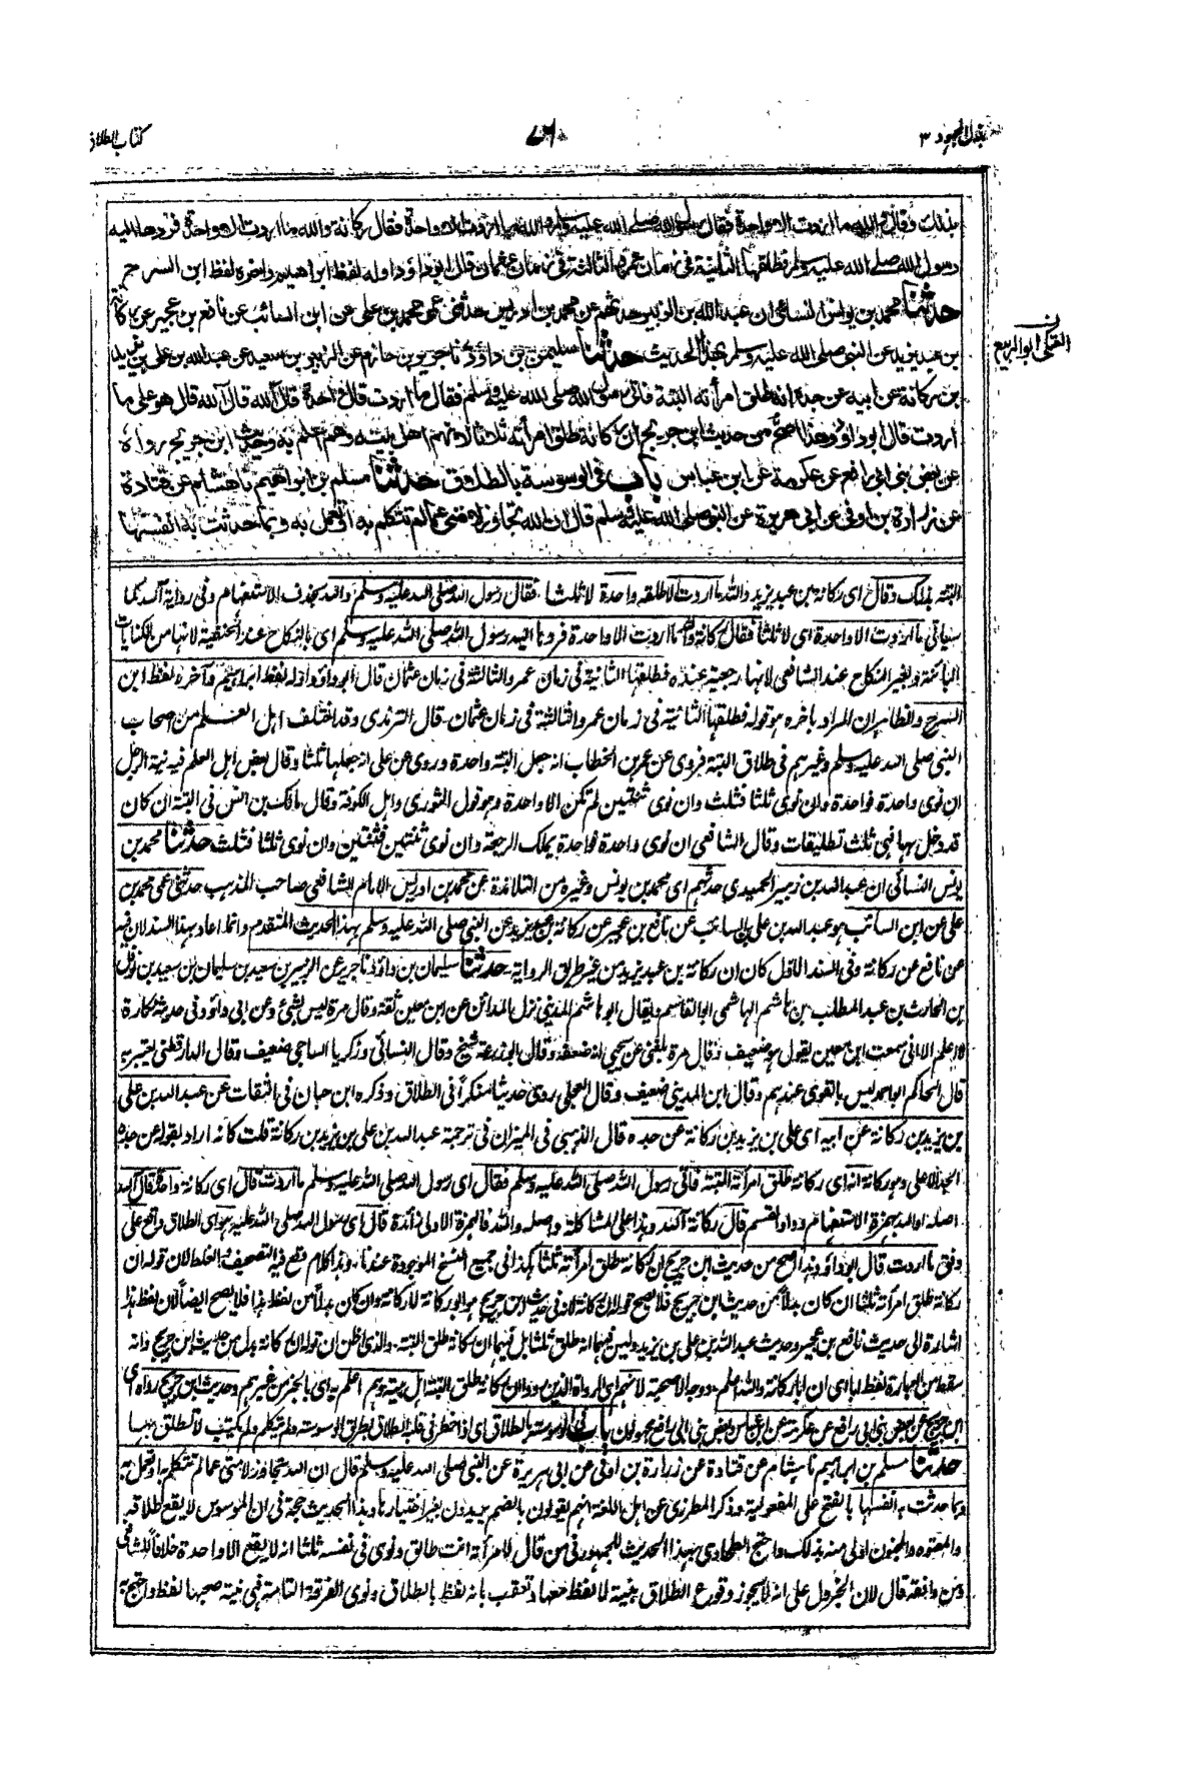 بذل المجهود ٣
٧٦
كتاب الطلاق
بذلك وقال والله ما اردت الا واحدة فقال رسول الله صلى الله عليه وسلم والله ما اردت الا واحدة فقال ركانة والله ما اردت الا واحدة فردها اليه
رسول الله صلى الله عليه وسلم فطلقها الثانية في زمان عمر والثالثة في زمان عثمان قال ابو داؤد اوله لفظ ابراهيم واخره لفظ ابن السرح
حدثنا محمد بن يونس النسائي ان عبد الله بن الزبير حدثهم عن محمد بن ادريس حدثني عمي محمد بن علي عن ابن السائب عن نافع بن عجير عن ركانة
بن عبد يزيد عن النبي صلى الله عليه وسلم بهذا الحديث حدثنا سليمن بن داؤد نا جرير بن حازم عن الزبير بن سعيد عن عبد الله بن علي بن يزيد
العتكي ابو الربيع
بن ركانة عن ابيه عن جده انه طلق امرأته البتة فاتى رسول الله صلى الله عليه وسلم فقال ما اردت قال واحدة قال آلله قال آلله قال هو على ما
اردت قال ابو داؤد وهذا اصح من حديث ابن جريج ان ركانة طلق امرأته ثلاثا لانهم اهل بيته وهم اعلم به وحديث ابن جريج رواه
عن بعض بني ابي رافع عن عكرمة عن ابن عباس باب في الوسوسة بالطلاق حدثنا مسلم بن ابراهيم نا هشام عن قتادة
عن زرارة بن اوفى عن ابي هريرة عن النبي صلى الله عليه وسلم قال ان الله تجاوز لامتي عما لم تتكلم به او تعمل به وبما حدثت به انفسها
البتة بذلك وقال اي ركانة بن عبد يزيد والله ما اردت الا طلقة واحدة لا ثلثا فقال رسول الله صلى الله عليه وسلم والله بحذف الاستفهام وفي رواية آلله كما
سيأتي ما اردت الا واحدة اي لا ثلثا فقال ركانة والله ما اردت الا واحدة فردها اليه رسول الله صلى الله عليه وسلم اي بالنكاح عند الحنفية لانها من الكنايات
البائنة وبغير النكاح عند الشافعي لانها رجعية عنده فطلقها الثانية في زمان عمر والثالثة في زمان عثمان قال ابو داؤد اوله لفظ ابراهيم وآخره لفظ ابن
السرح والظاهر ان المراد باخره هو قوله فطلقها الثانية في زمان عمر والثالثة في زمان عثمان۔ قال الترمذي وقد اختلف اهل العلم من اصحاب
النبي صلى الله عليه وسلم وغيرهم في طلاق البتة فروي عن عمر بن الخطاب انه جعل البتة واحدة وروي عن علي انه جعلها ثلثا وقال بعض اهل العلم فيه نية الرجل
ان نوى واحدة فواحدة وان نوى ثلثا فثلث وان نوى ثنتين لم تكن الا واحدة وهو قول الثوري واهل الكوفة وقال مالك بن انس في البتة ان كان
قد دخل بها فهي ثلث تطليقات وقال الشافعي ان نوى واحدة فواحدة يملك الرجعة وان نوى ثنتين فثنتين وان نوى ثلثا فثلث حدثنا محمد بن
يونس النسائي ان عبد الله بن زبير الحميدي حدثهم اي محمد بن يونس وغيره من التلامذة عن محمد بن ادريس الامام الشافعي صاحب المذهب حدثني عمي محمد بن
علي عن ابن السائب هو عبد الله بن علي بن السائب عن نافع بن عجير عن ركانة بن عبد يزيد عن النبي صلى الله عليه وسلم بهذا الحديث المتقدم وانما اعاد بهذا السند لان فيه
عن نافع عن ركانة وفي السند الاول كان ان ركانة بن عبد يزيد من غير طريق الرواية حدثنا سليمان بن داؤد نا جرير عن الزبير بن سعيد بن سليمان بن سعيد بن نوفل
بن الحارث بن عبد المطلب بن هاشم الهاشمي ابو القاسم ويقال ابو هاشم المديني نزل المدائن عن ابن معين ثقة وقال مرة ليس بشئ وعن ابي داؤد في حديثه نكارة
لا اعلم الا اني سمعت ابن معين يقول هو ضعيف وقال مرة بلغني عن يحيى انه ضعفه وقال ابو زرعة شيخ وقال النسائي وزكريا الساجي ضعيف وقال الدارقطني يعتبر به
قال الحاكم ابو احمد ليس بالقوي عندهم وقال ابن المديني ضعيف وقال العجلي روى حديثا منكرا في الطلاق وذكره ابن حبان في الثقات عن عبد الله بن علي
بن يزيد بن ركانة عن ابيه اي علي بن يزيد بن ركانة عن جده قال الذهبي في الميزان في ترجمة عبد الله بن علي بن يزيد بن ركانة قلت كانه اراد بقوله عن جده
الجد الاعلى وهو ركانة انه اي ركانة طلق امرأته البتة فاتى رسول الله صلى الله عليه وسلم فقال اي رسول الله صلى الله عليه وسلم ما اردت قال اي ركانة واحدة قال آلله
اصله أوالله بهمزة الاستفهام وواو القسم قال ركانة آلله وهذا على المشاكلة واصله والله فالهمزة الاولى زائدة قال اي رسول الله صلى الله عليه هو اي الطلاق واقع على
وفق ما اردت قال ابو داؤد وهذا اصح من حديث ابن جريج ان ركانة طلق امرأته ثلثا هكذا في جميع النسخ الموجودة عندنا، وهذا كلام وقع فيه التصحيف والغلط لان قوله ان
ركانة طلق امرأته ثلثا ان كان بدلا من حديث ابن جريج فلا يصح قوله ان ركانة لان في حديث ابن جريج هو ابو ركانة لا ركانة وان كان بدلا من لفظ هذا فلا يصح ايضا لان لفظ هذا
اشارة الى حديث نافع بن عجير وحديث عبد الله بن علي بن يزيد وليس فيهما انه طلق ثلثا بل فيهما ان ركانة طلق البتة۔ والذي اظن ان قوله ان ركانة بدل من حديث ابن جريج وانه
سقط من العبارة لفظ ابا اي ان ابا ركانة والله اعلم۔ ووجه الاصحية لانهم اي الرواة الذين رووا ان ركانة طلق البتة اهل بيته وهم اعلم به اي بالخبر من غيرهم وحديث ابن جريج رواه اي
ابن جريج عن بعض بني ابي رافع عن عكرمة عن ابن عباس وبعض بني ابي رافع مجهولون باب في الوسوسة بالطلاق اي اذا خطر في قلبه الطلاق بطريق الوسوسة ولم يتكلم ولم يكتب لا تطلق بها
حدثنا مسلم بن ابراهيم نا هشام عن قتادة عن زرارة بن اوفى عن ابي هريرة عن النبي صلى الله عليه وسلم قال ان الله تجاوز لامتي عما لم تتكلم به او تعمل به
وبما حدثت به انفسها بالفتح على المفعولية وذكر المطرزي عن اهل اللغة انهم يقولون بالضم يريدون بغير اختيارها وهذا الحديث حجة في ان الموسوس لا يقع طلاقه
والمعتوه والمجنون اولى منه بذلك واحتج الطحاوي بهذا الحديث للجمهور في من قال لامرأته انت طالق ونوى في نفسه ثلثا انه لا يقع الا واحدة خلافا للشافعي
ومن وافقه قال لان الخبر دل على انه لا يجوز وقوع الطلاق بنية لا لفظ معها وتعقب بانه لفظ بالطلاق ونوى الفرقة التامة فهي نية صحبها لفظ واحتج به